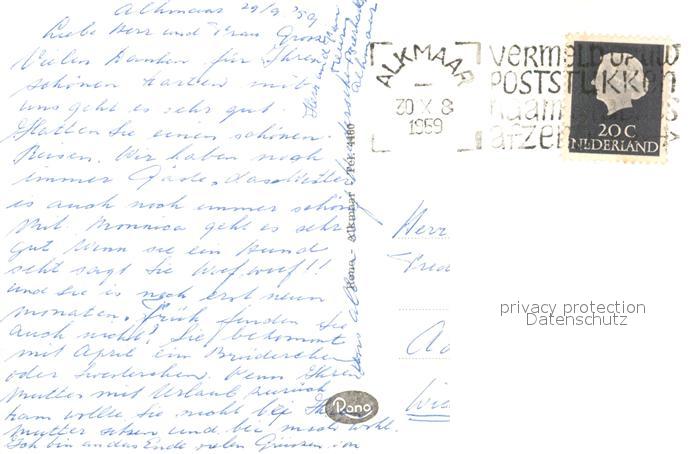 Alkmaar 29/9 '59
Liebe Herr und Frau Grosse
Vielen Danken für Ihren
schönen Karten mit
uns geht es sehr gut.
Hatten Sie einen schönen
Reisen. Wir haben noch
immer Gäste, das Wetter
es auch noch immer schön
Mit Monnica geht es sehr
gut Wenn sie ein Hund
seht sagt Sie Wof, wof!!
und sie is noch erst neun
monaten. Früh finden Sie
auch nicht? Sie bekommt
mit April ein Brüderchen
oder Swesterchen. Wenn Ihren
Mutter mit Urlaub zurück
kam wollte Sie nicht bei Ihr
Mutter sitzen und bei mich wohl.
Ich bin an das Ende vielen Grüssen von
Herr und Frau
Alkmaar
Rona - Alkmaar
4480
Rona
ALKMAAR
30 X 8
1959
VERMELD OP UW
POSTSTUKKEN
naam
afzen
20 C
NEDERLAND
Herr
Fred
Wie
privacy protection
Datenschutz